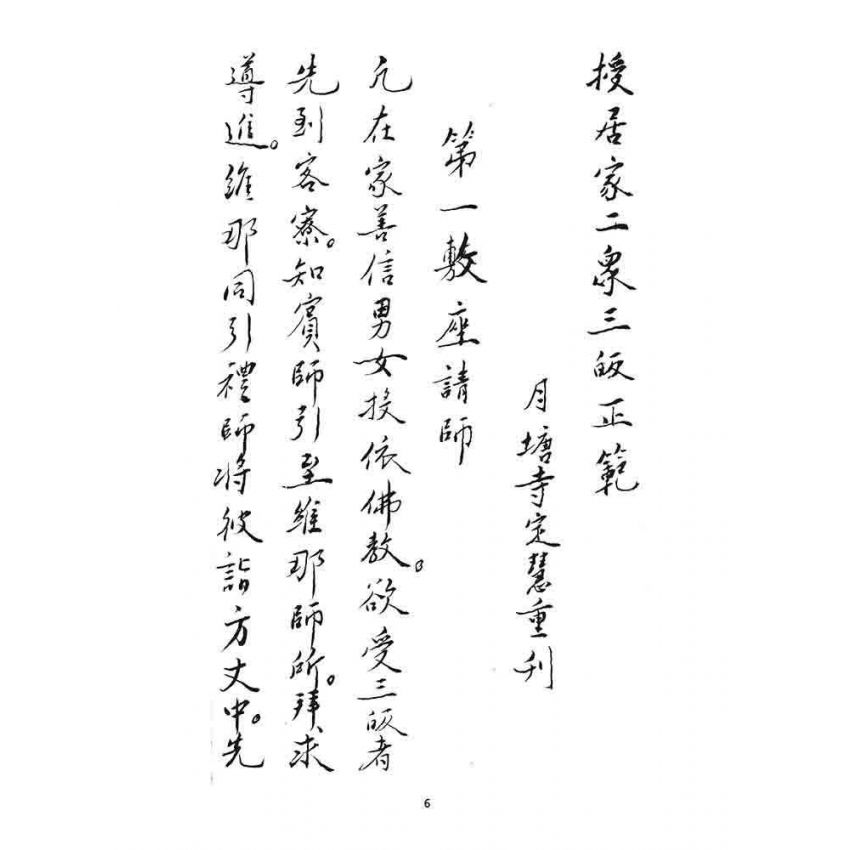 授居家二衆三皈正範
月塘寺定慧重刊
第一敷座請師
凡在家善信男女投依佛教。欲受三皈者
先到客寮。知賓師引至維那師所。拜求
導進。維那同引禮師將彼詣方丈中。先
6